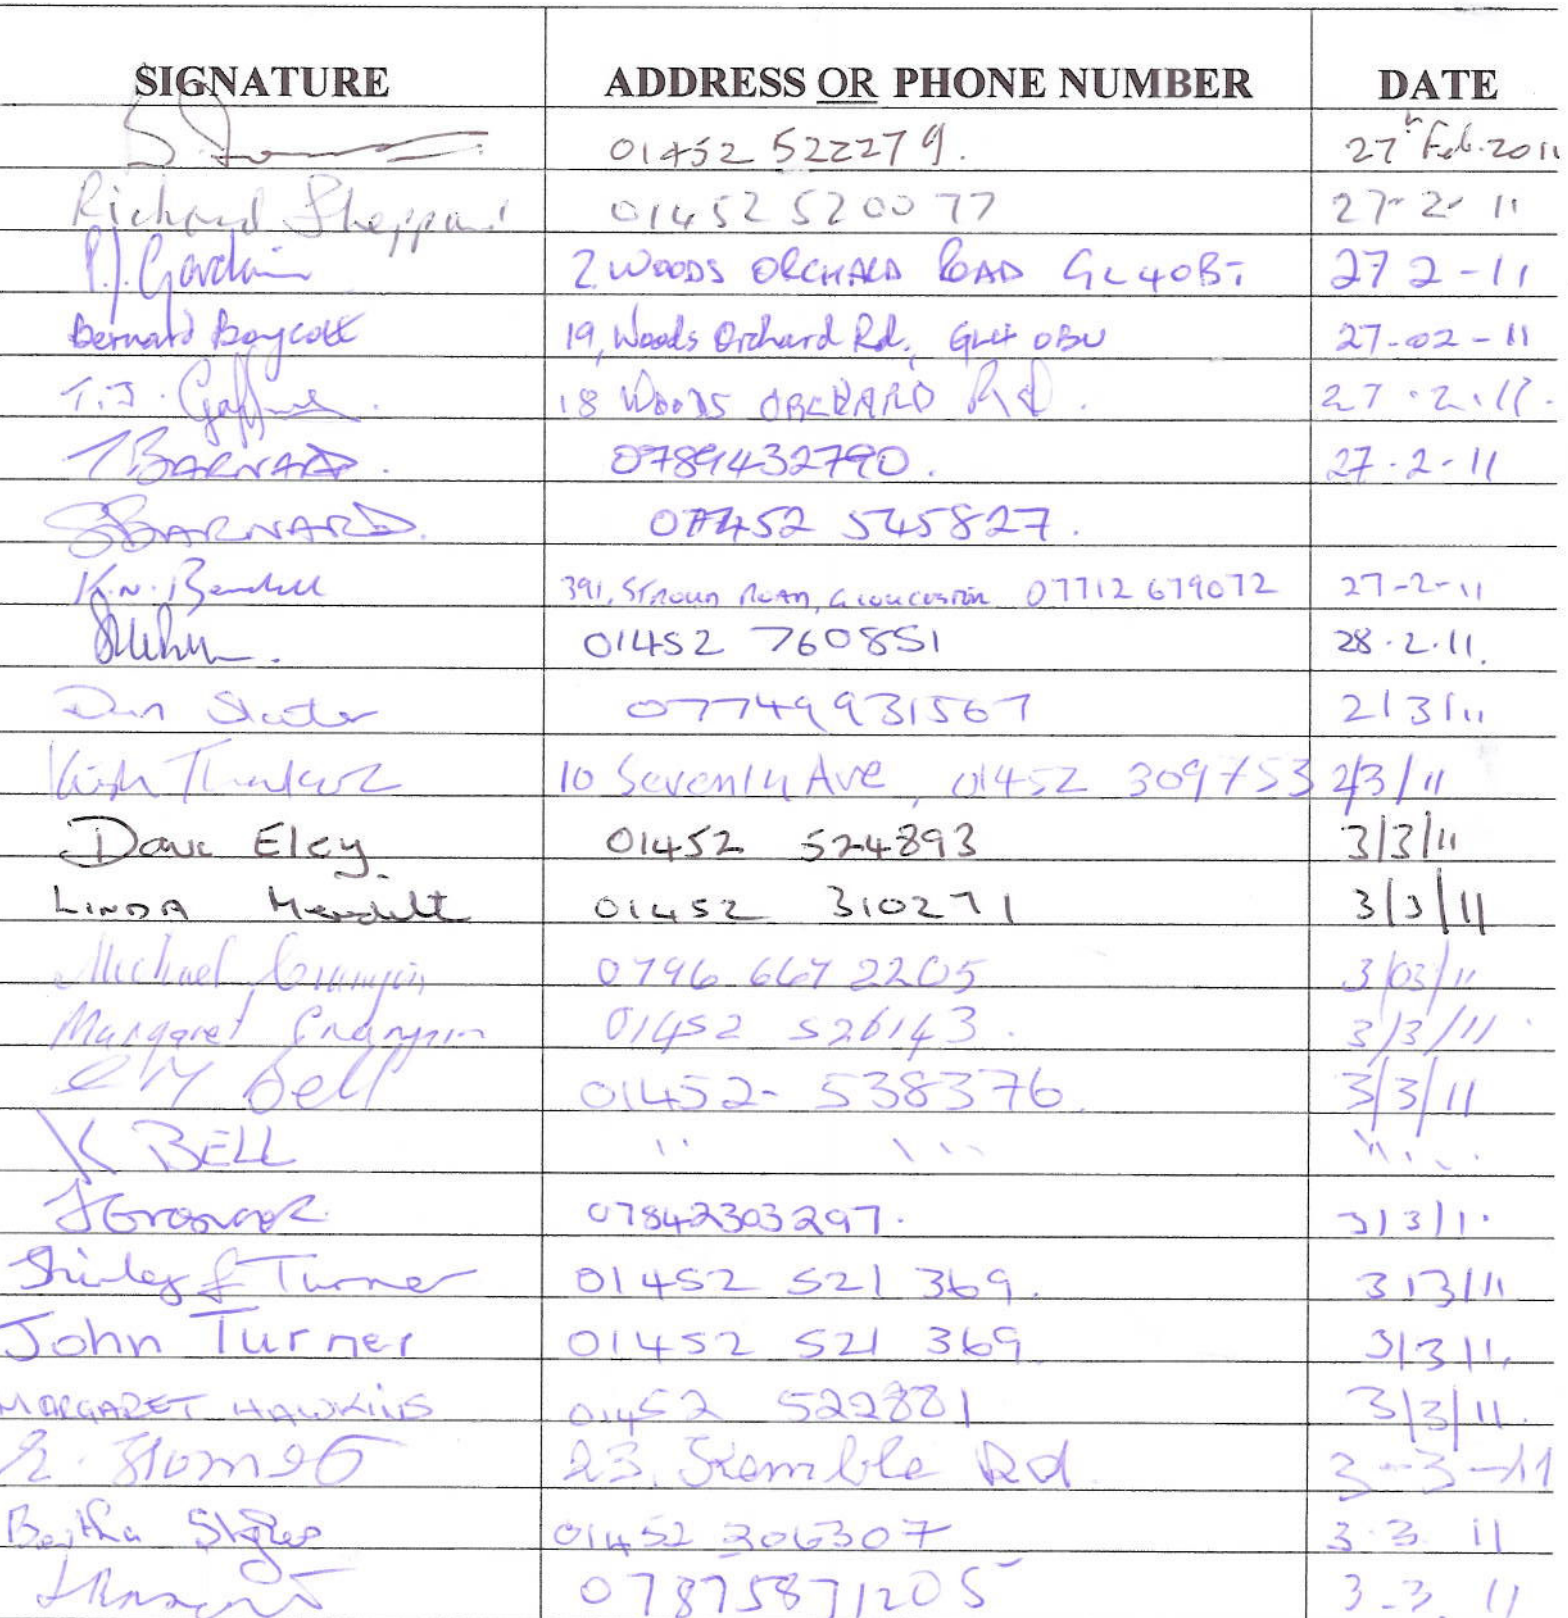 SIGNATURE ADDRESS OR PHONE NUMBER DATE
01452 522279. 27th Feb. 2011
Richard Sheppard 01452 520077 27-2-11
P.J. 2 WOODS ORCHARD ROAD GL4 0BT 27 2-11
Bernard Boycott 19, Woods Orchard Rd. GL4 0BU 27-02-11
T.J. 18 WOODS ORCHARD Rd. 27.2.11.
T BARNARD. 07894432790. 27.2-11
S BARNARD. 01452 545827.
K.N. 391, STROUD ROAD, GLOUCESTER 07712 679072 27-2-11
01452 760851 28.2.11.
Dan 07749931567 2/3/11
10 Seventh Ave, 01452 309753 2/3/11
Dave Eley. 01452 524893 3/3/11
LINDA 01452 310271 3/3/11
Michael 0796 667 2205 3/03/11
Margaret 01452 526143. 3/3/11
Bell 01452-538376 3/3/11
K BELL '' ''' ''''
07842303297. 3/3/11
Shirley Turner 01452 521 369. 3/3/11
John Turner 01452 521 369 3/3/11.
MARGARET HAWKINS 01452 522881 3/3/11.
23. Kemble Rd 3-3-11
Bertha 01452 306307 3.3.11
07875871205 3-3.11